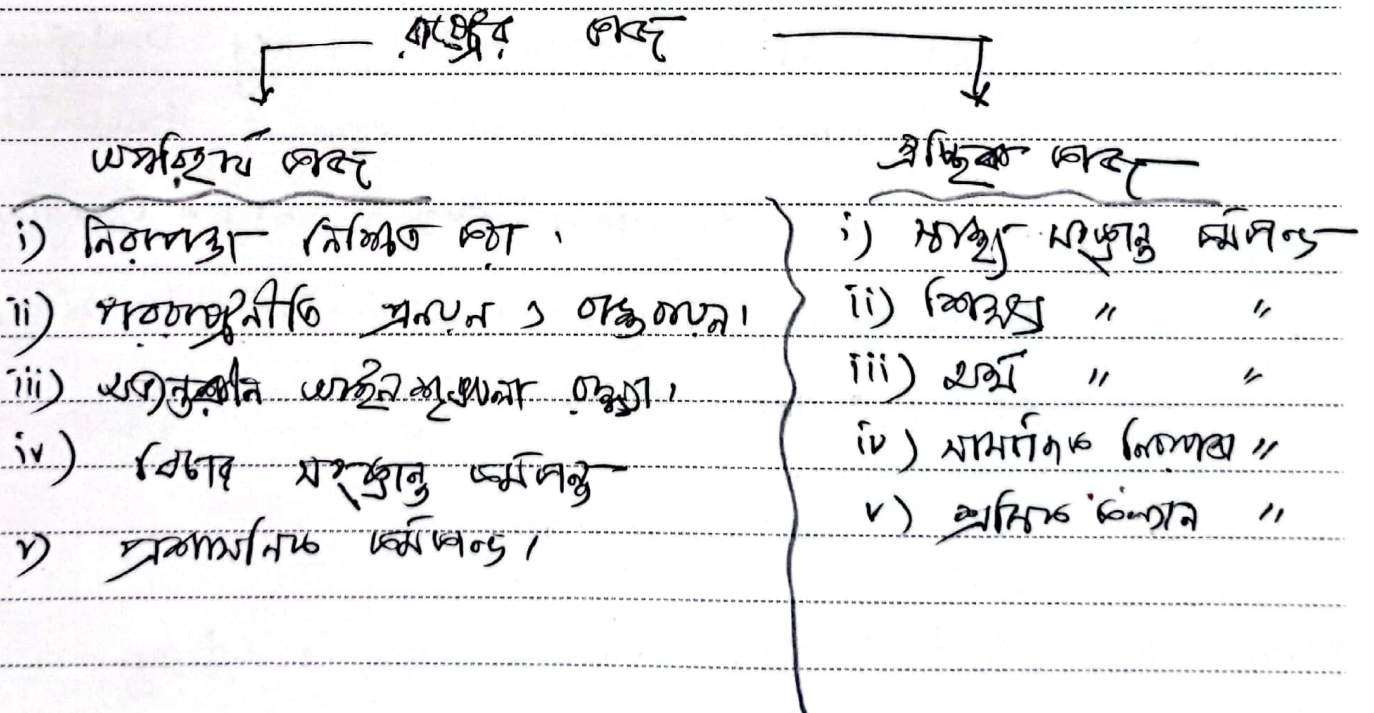 রাষ্ট্রের কাজ
অপরিহার্য কাজ
i) নিরাপত্তা নিশ্চিত করা।
ii) পররাষ্ট্রনীতি প্রনয়ন ও বাস্তবায়ন।
iii) অভ্যন্তরীন আইন শৃঙ্খলা রক্ষা।
iv) বিচার সংক্রান্ত কর্মকান্ড
v) প্রশাসনিক কর্মকান্ড।
ঐচ্ছিক কাজ
i) স্বাস্থ্য সংক্রান্ত কর্মকান্ড
ii) শিক্ষা " "
iii) " "
iv) সামাজিক নিরাপত্তা "
v) শ্রমিক কল্যান "